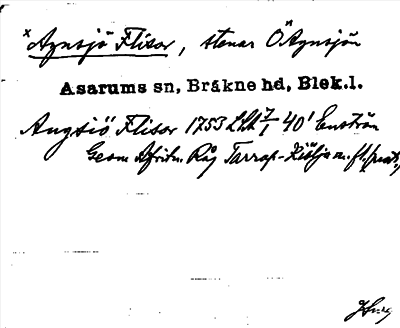 x Agnsjö Flisor, stenar Ö Agnsjön
Asarums sn, Bräkne hd, Blek.l.
Angsiö Flisor 1753 Lhk 7/1 40' Enström
Geom Afritn. Råg Tarrap-Kiölja m. fl.